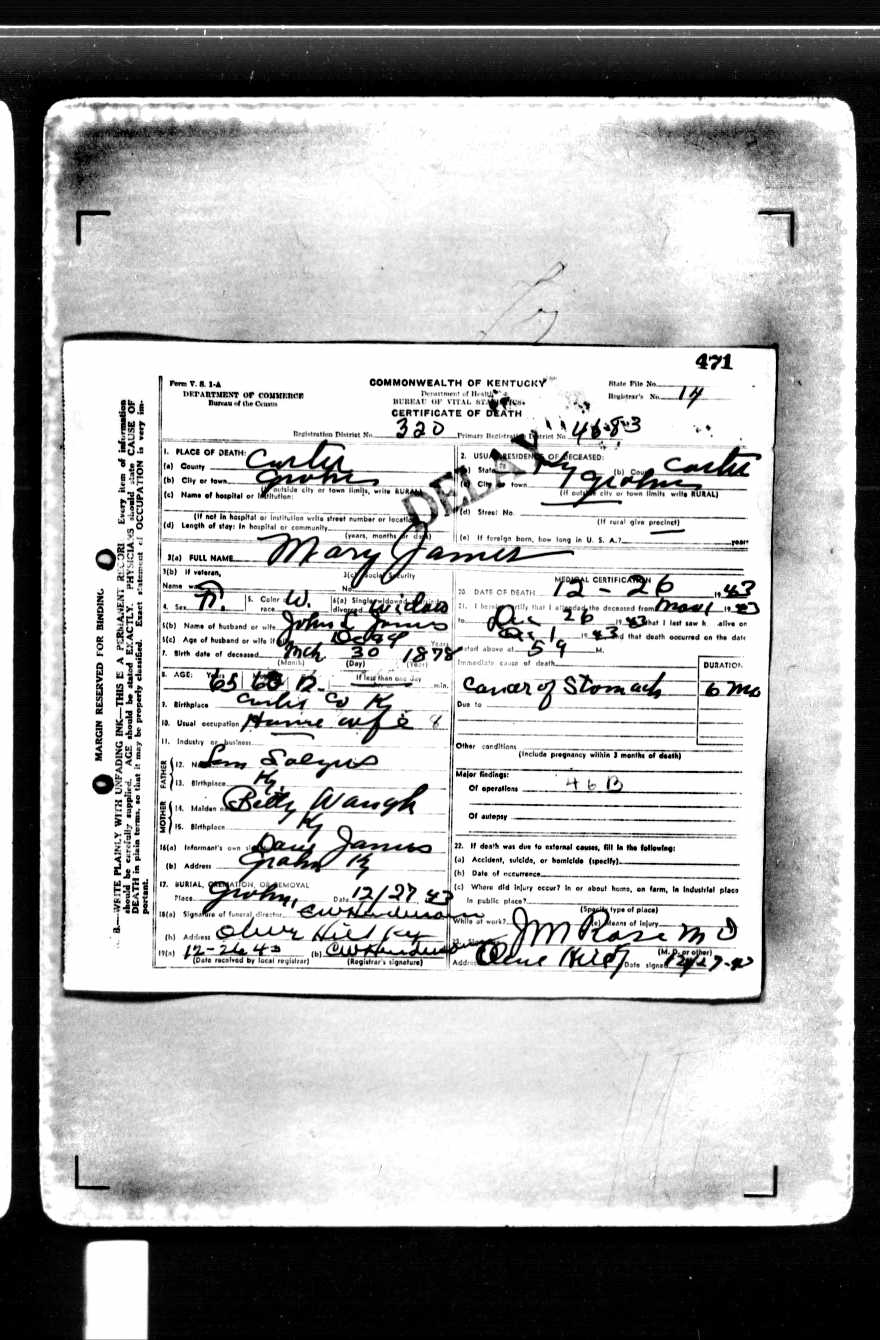 471
Form V. S. 1-A
DEPARTMENT OF COMMERCE
Bureau of the Census
COMMONWEALTH OF KENTUCKY
Department of Health
BUREAU OF VITAL STATISTICS
CERTIFICATE OF DEATH
State File No.
Registrar's No. 14
Registration District No. 320 Primary Registration District No. 4683
DELAY
MARGIN RESERVED FOR BINDING
N. B.—WRITE PLAINLY WITH UNFADING INK—THIS IS A PERMANENT RECORD Every item of information
should be carefully supplied. AGE should be stated EXACTLY. PHYSICIANS should state CAUSE OF
DEATH in plain terms, so that it may be properly classified. Exact statement of OCCUPATION is very im-
portant.
1. PLACE OF DEATH:
(a) County Carter
(b) City or town Grahn
(If outside city or town limits, write RURAL)
(c) Name of hospital or institution:
(If not in hospital or institution write street number or location)
(d) Length of stay: In hospital or community
(years, months or days)
2. USUAL RESIDENCE OF DECEASED:
(a) State Ky (b) County Carter
(c) City or town Grahn
(If outside city or town limits write RURAL)
(d) Street No.
(If rural give precinct)
(e) If foreign born, how long in U. S. A.? years
3(a) FULL NAME Mary James
3(b) If veteran,
Name war
3(c) Social Security
No.
4. Sex F. 5. Color or race W. 6(a) Single, widowed, married, divorced Widow
6(b) Name of husband or wife John C James
6(c) Age of husband or wife if alive Dead Years
7. Birth date of deceased Mch 30 1878
(Month) (Day) (Year)
8. AGE: Years 65 If less than one day
min.
9. Birthplace Carter Co Ky
10. Usual occupation House wife 8
11. Industry or business
FATHER
12. Name Sam Salyers
13. Birthplace Ky
MOTHER
14. Maiden name Betty Waugh
15. Birthplace Ky
16(a) Informant's own signature James
(b) Address Grahn Ky
17. BURIAL, CREMATION, OR REMOVAL
Place Grahn Date 12/27 43
18(a) Signature of funeral director CW Henderson
(b) Address Olive Hill Ky
19(a) 12-26 43 (b) CW Henderson
(Date received by local registrar) (Registrar's signature)
MEDICAL CERTIFICATION
20. DATE OF DEATH 12 - 26 1943
21. I hereby certify that I attended the deceased from Mar 1 1943
to Dec 26 1943 that I last saw h alive on
Dec 1 1943 and that death occurred on the date
stated above at M.
Immediate cause of death
DURATION
Cancer of Stomach 6 Mo
Due to
Other conditions
(Include pregnancy within 3 months of death)
Major findings:
Of operations 46B
Of autopsy
22. If death was due to external causes, fill in the following:
(a) Accident, suicide, or homicide (specify)
(b) Date of occurrence
(c) Where did injury occur? In or about home, on farm, in industrial place
in public place?
(Specify type of place)
While at work? (e) Means of injury
J M Rose M D
(M. D. or other)
Address Olive Hill Ky Date signed 12/27-43